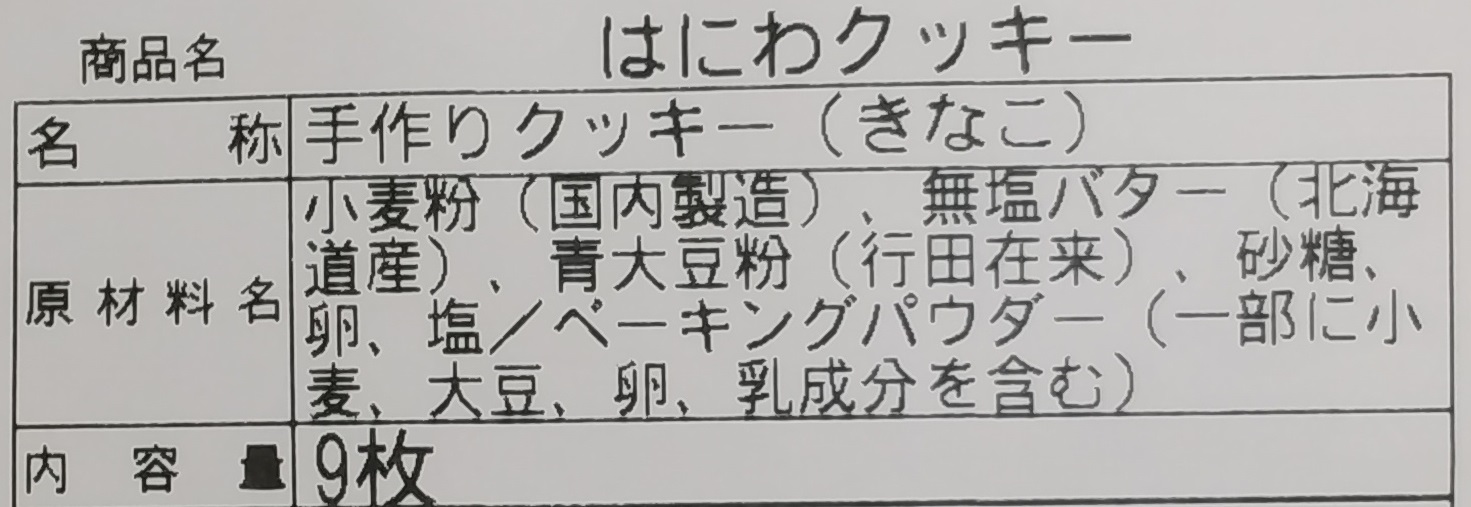 商品名 はにわクッキー
名称 手作りクッキー（きなこ）
小麦粉（国内製造）、無塩バター（北海
道産）、青大豆粉（行田在来）、砂糖、
原材料名
卵、塩／ペーキングパウダー（一部に小
麦、大豆、卵、乳成分を含む）
内容量 9枚